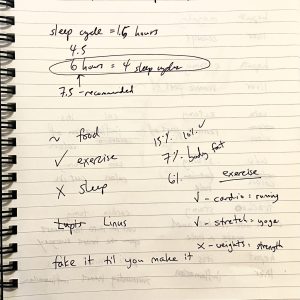 sleep cycle = 1.5 hours
4.5
6 hours = 4 sleep cycles
↑
7.5 - recommended
~ food
✓ exercise
X sleep
Linus
fake it til you make it
15% 10% ✓
7% body fat
6%
exercise
✓ - cardio : running
✓ - stretch : yoga
X - weights : strength